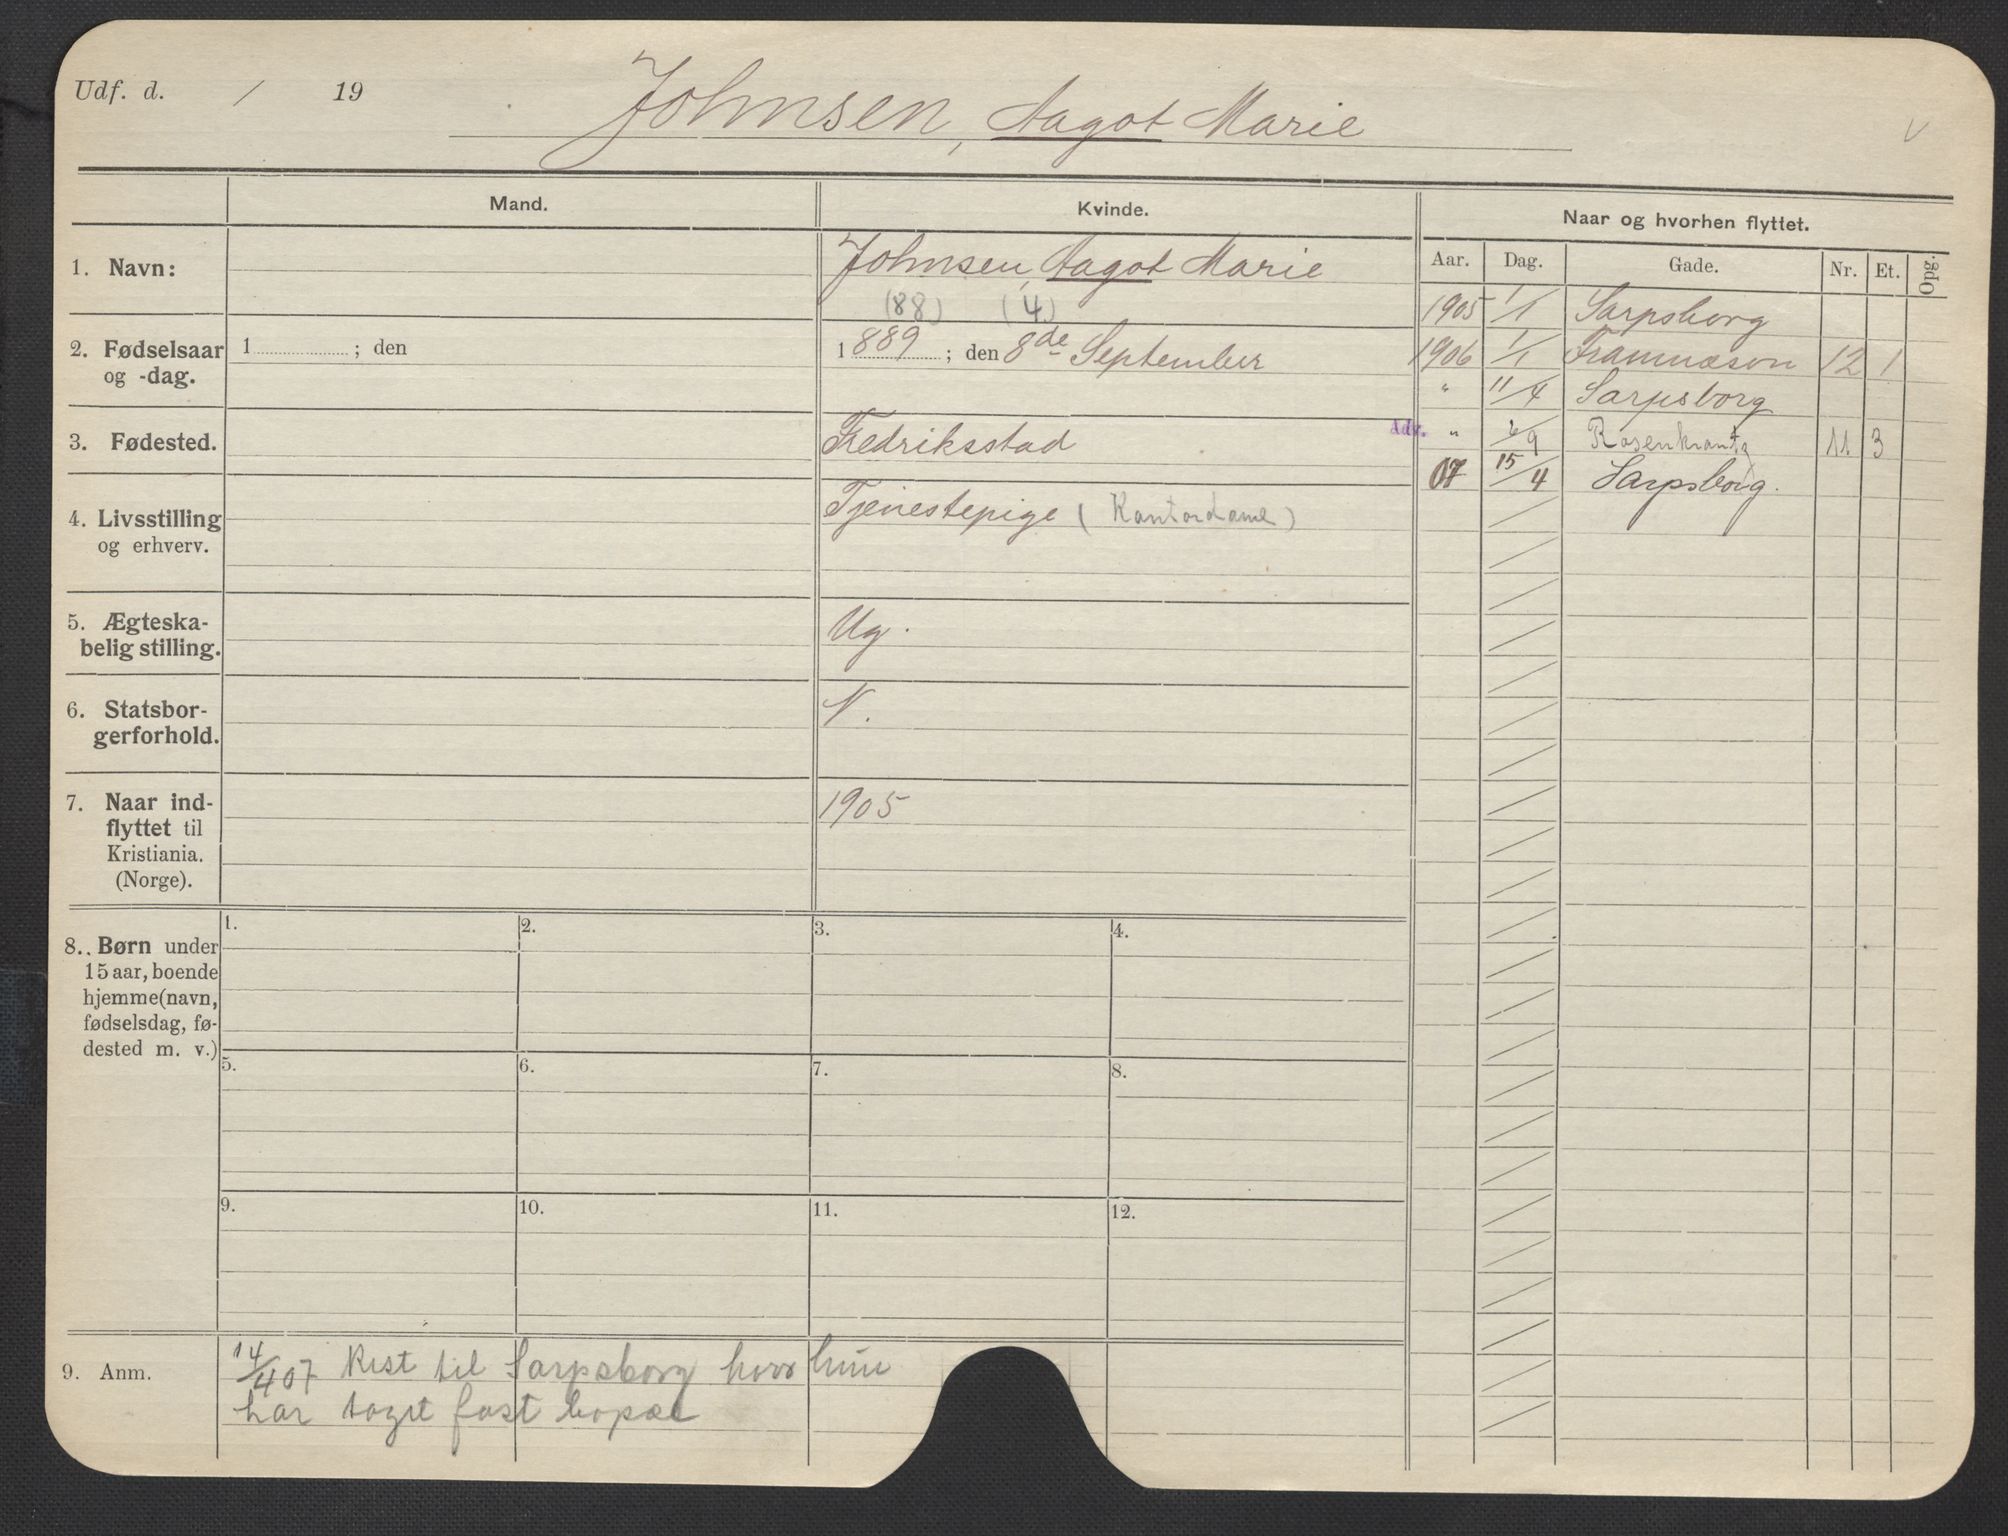 Udf. d. / 19
Johnsen, Aagot Marie
Mand.
Kvinde.
Naar og hvorhen flyttet.
Aar. Dag. Gade. Nr. Et. Opg.
1. Navn:
Johnsen, Aagot Marie
(88) (4)
2. Fødselsaar og -dag.
1 ; den
1889 ; den 8de September
3. Fødested.
Fredriksstad
4. Livsstilling og erhverv.
Tjenestepige (Kontordame)
5. Ægteska-
belig stilling.
Ug.
6. Statsbor-
gerforhold.
N.
7. Naar ind-
flyttet til
Kristiania.
(Norge).
1905
1905 1/1 Sarpsborg
1906 1/1 Framnæsvn 12 1
" 11/4 Sarpsborg
Adr. " 6/9 Rosenkrantzg 11. 3
07 15/4 Sarpsborg.
8. Børn under
15 aar, boende
hjemme (navn,
fødselsdag, fø-
dested m. v.)
1. 2. 3. 4.
5. 6. 7. 8.
9. 10. 11. 12.
9. Anm.
14/4 07 Rest til Sarpsborg hvor hun
har taget fast bopæl